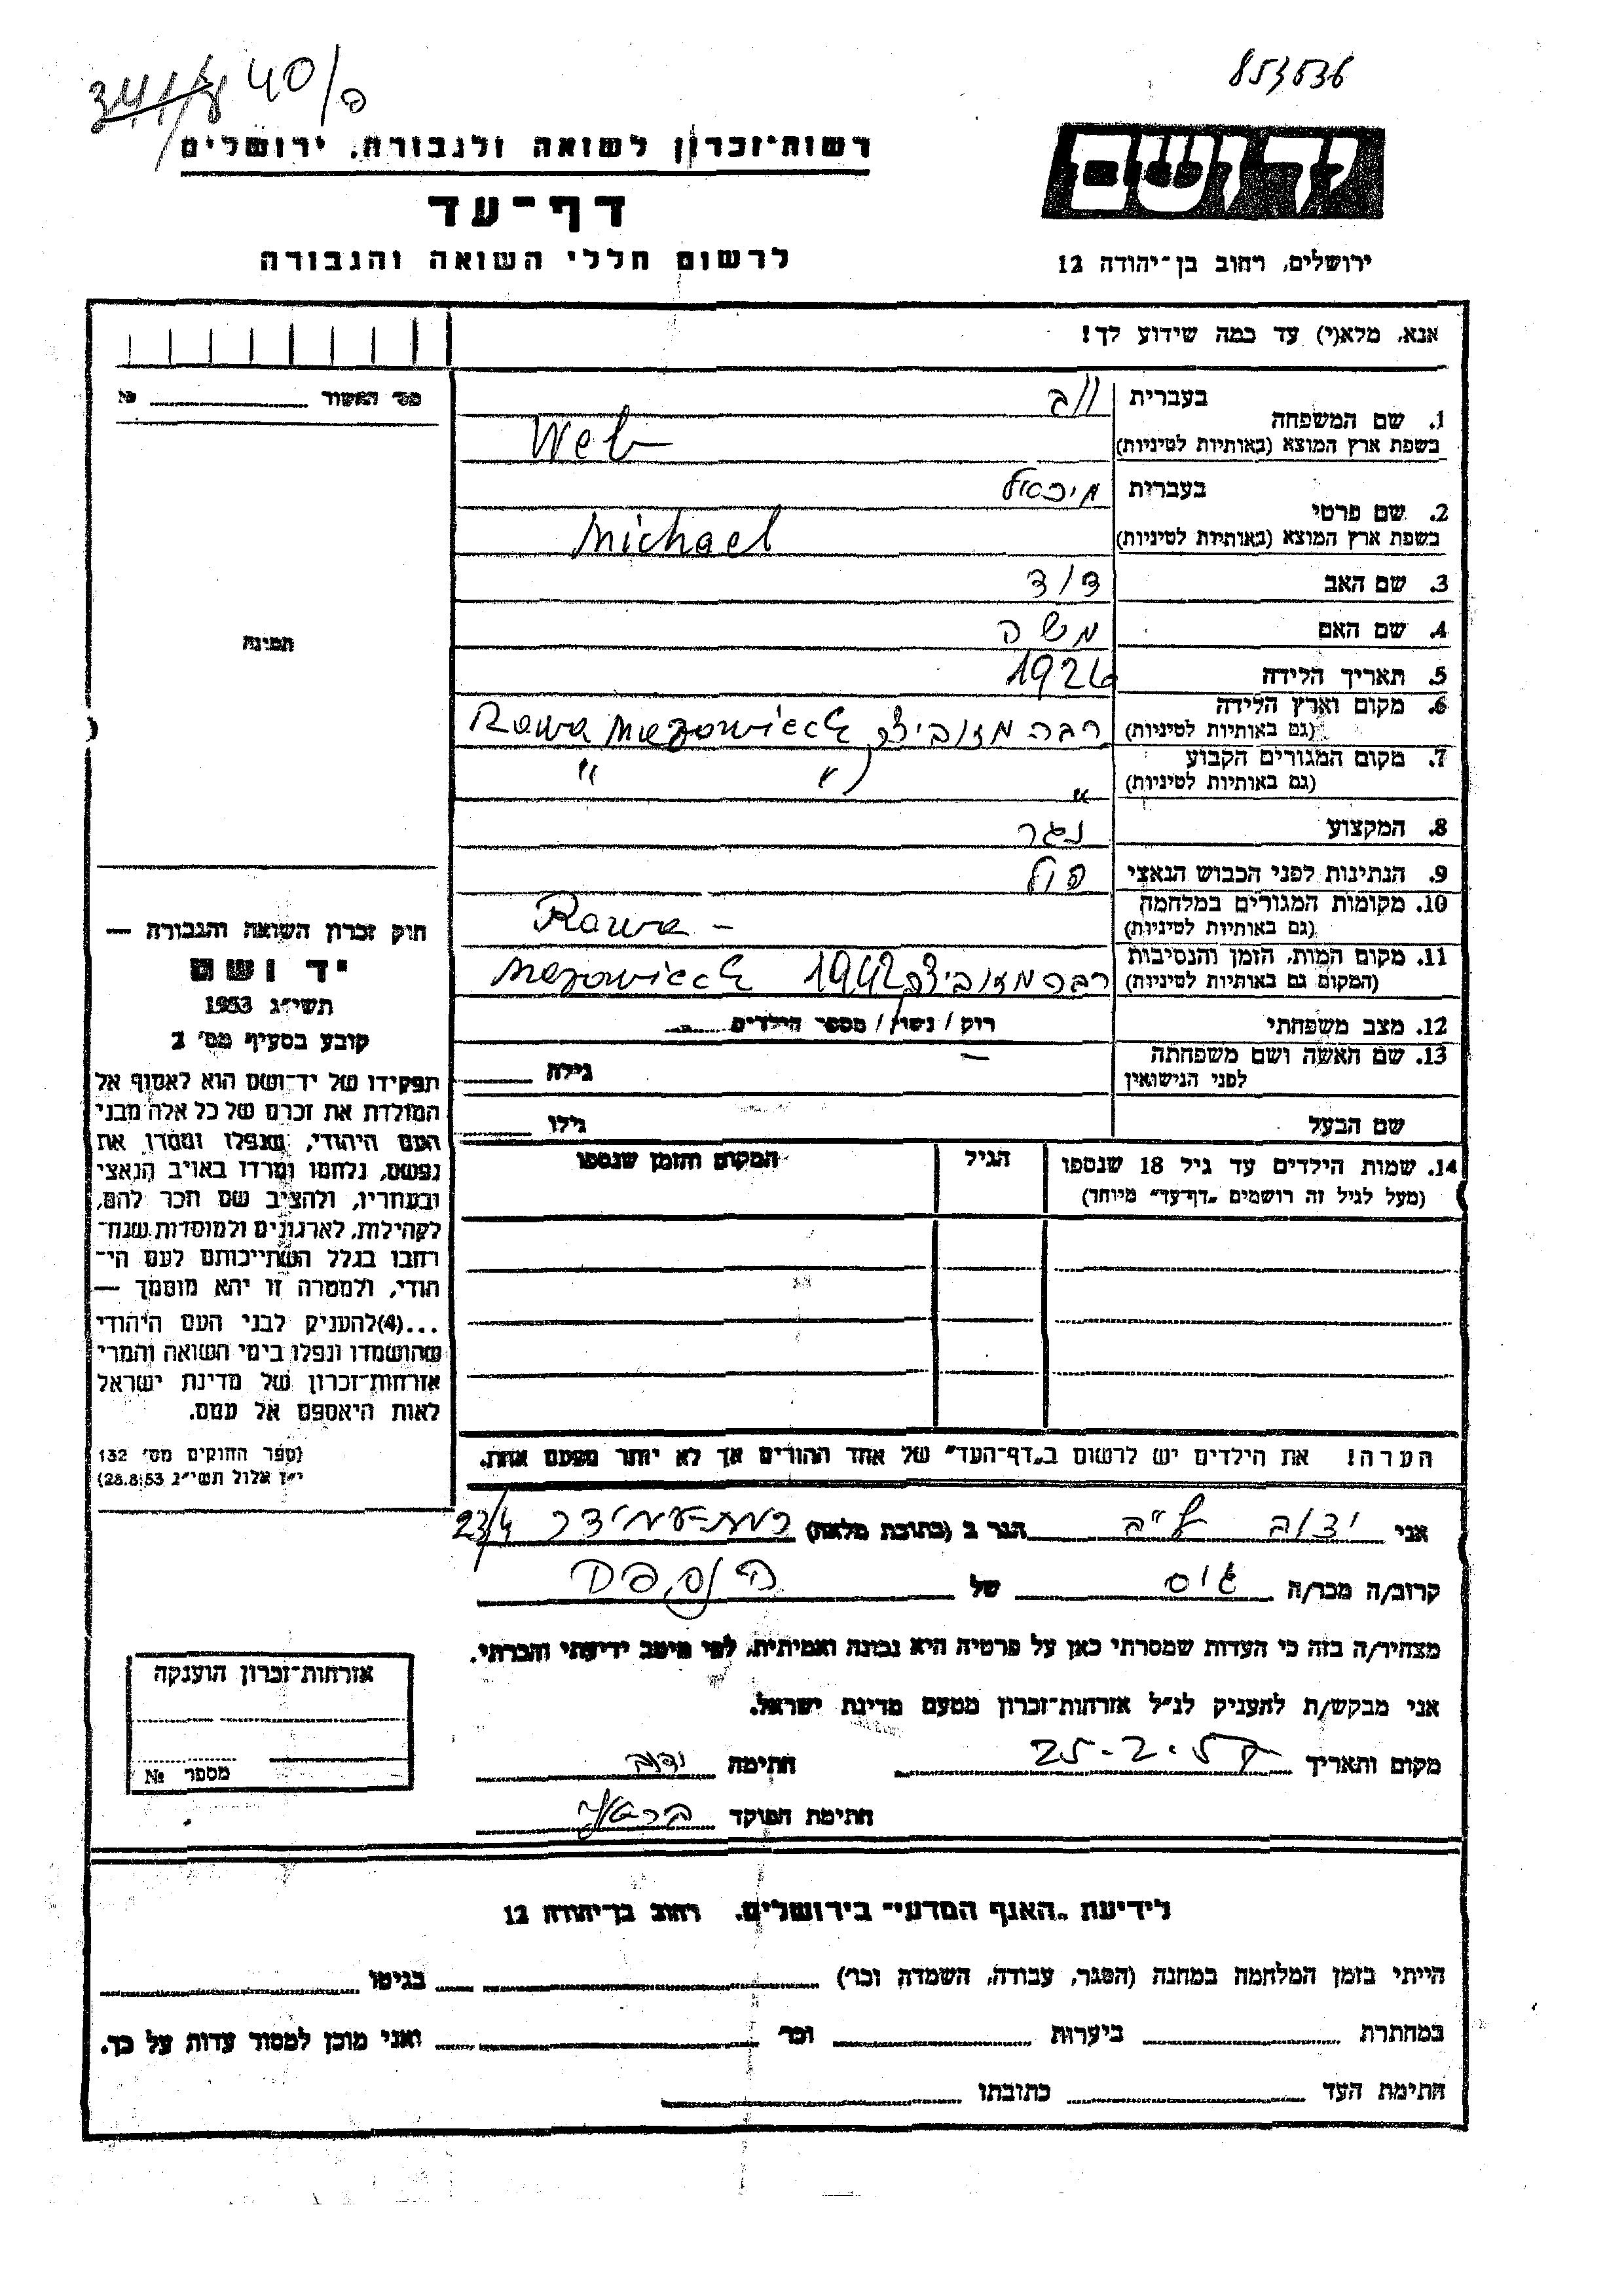 853536
40/פ
רשות־זכרון לשואה ולגבורה, ירושלים
דף־עד
לרשום חללי השואה והגבורה
יד ושם
ירושלים, רחוב בן־יהודה 12
אנא, מלא(י) עד כמה שידוע לך!
מס' האשור № 
1. שם המשפחה בעברית ווב
בשפת ארץ המוצא (באותיות לטיניות) Web
2. שם פרטי בעברית מיכאל
בשפת ארץ המוצא (באותיות לטיניות) Michael
3. שם האב דוד
4. שם האם משה
5. תאריך הלידה 1926
6. מקום וארץ הלידה (גם באותיות לטיניות) רבה מזוביצק Rawa Mazowieck
7. מקום המגורים הקבוע (גם באותיות לטיניות) " " "
8. המקצוע נגר
9. הנתינות לפני הכבוש הנאצי פול
10. מקומות המגורים במלחמה (גם באותיות לטיניות) Rawa -
11. מקום המות, הזמן והנסיבות (המקום גם באותיות לטיניות) רבה מזוביצק 1942 Mazowieck
12. מצב משפחתי רוק / נשוי / מספר הילדים
13. שם האשה ושם משפחתה לפני הנישואין — גילה
שם הבעל גילו
14. שמות הילדים עד גיל 18 שנספו הגיל המקום והזמן שנספו
(מעל לגיל זה רושמים "דף־עד" מיוחד)
הערה! את הילדים יש לרשום ב"דף־העד" של אחד ההורים אך לא יותר מפעם אחת.
תמונה
חוק זכרון השואה והגבורה —
יד ושם
תשי"ג 1953
קובע בסעיף מס' 2
תפקידו של יד־ושם הוא לאסוף אל
המולדת את זכרם של כל אלה מבני
העם היהודי, שנפלו ומסרו את
נפשם, נלחמו ומרדו באויב הנאצי
ובעוזריו, ולהציב שם וזכר להם,
לקהילות, לארגונים ולמוסדות שנח־
רבו בגלל השתייכותם לעם הי־
הודי, ולמטרה זו יהא מוסמך —
...(4)להעניק לבני העם היהודי
שהושמדו ונפלו בימי השואה והמרי
אזרחות־זכרון של מדינת ישראל
לאות היאספם אל עמם.
(ספר החוקים מס' 132
י"ז אלול תשי"ג 28.8.53)
אני הגר ב (כתובת מלאה) רמת־עמידר 23/4
קרוב/ה מכר/ה גיס של הנספה
מצהיר/ה בזה כי העדות שמסרתי כאן על פרטיה היא נכונה ואמיתית, לפי מיטב ידיעתי והכרתי.
אני מבקש/ת להעניק לנ"ל אזרחות־זכרון מטעם מדינת ישראל.
מקום ותאריך 25-2-57 חתימה
חתימת הפוקד
אזרחות־זכרון הוענקה
מספר №
לידיעת "האגף המדעי" בירושלים, רחוב בן־יהודה 12
הייתי בזמן המלחמה במחנה (הסגר, עבודה, השמדה וכו') בגיטו
במחתרת ביערות וכו' ואני מוכן למסור עדות על כך.
חתימת העד כתובתו